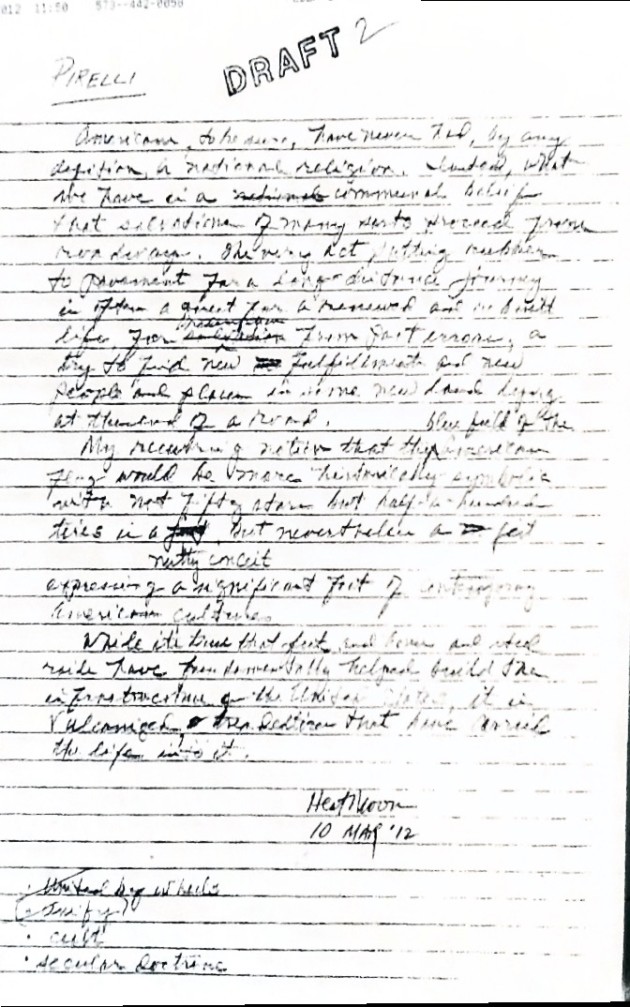 2012 11:50 573--442-0090
DRAFT 2
PIRELLI
Americans, to be sure, have never had, by any
definition, a national religion. Instead, what
we have is a communal belief
that salvations of many sorts proceed from
roadways. The very act putting rubber
to pavement for a long-distance journey
is often a quest for a renewed and
life, for redemption from past errors, a
try to find new fulfillments and new
people and places in some new land lying
at the end of a road.
blue field of the
My recurring notion that the American
flag would be more historically symbolic
with not fifty stars but half-a-hundred
tires is a but nevertheless a
nutty conceit
expressing a significant of contemporary
American culture.
While it's true that feet and and steel
rails have fundamentally helped build the
infrastructure of the United States, it is
Vulcanized, that have carried
the life into it.
Heat-Moon
10 MAR '12
· United by wheels
· cult
· secular doctrine